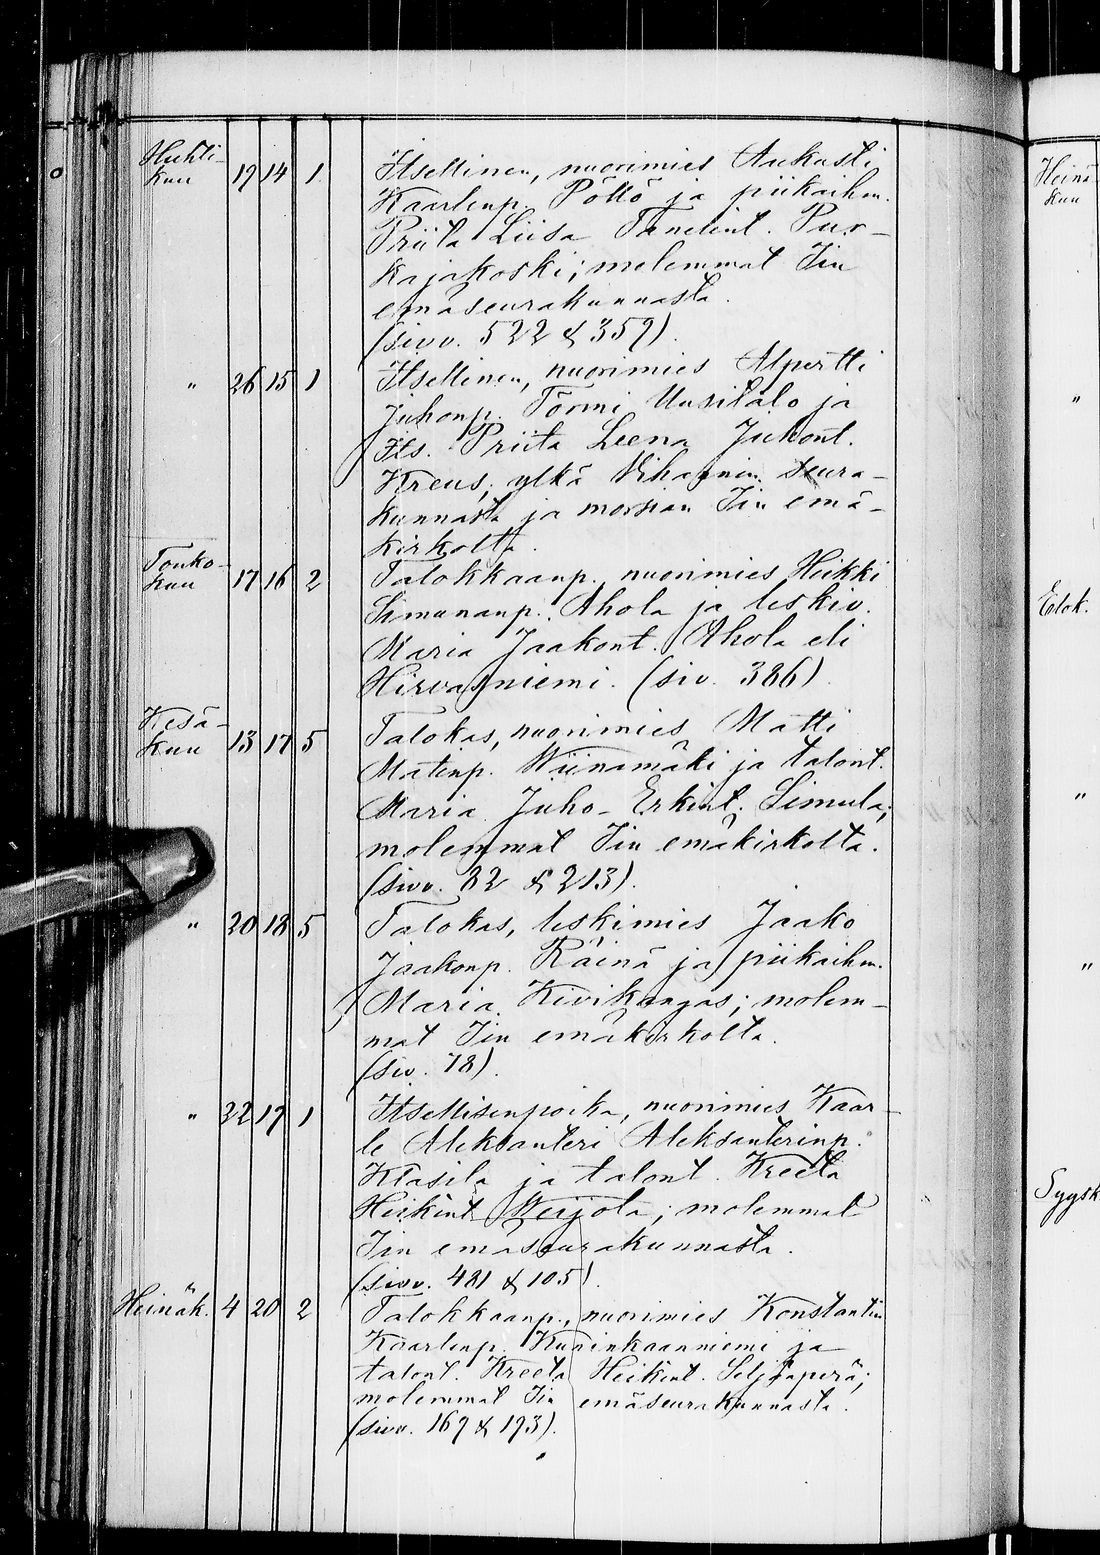 Huhti-
kuu 19 14 1 Itsellinen, nuorimies Aukusti
Kaarlenp. Pöllö ja piikaihm.
Priita Liisa Tanelint. Pur-
kajakoski; molemmat Iin
emäseurakunnasta.
(sivv. 522 & 359).
" 26 15 1 Itsellinen, nuorimies Alpertti
Juhonp. Törmi Uusitalo ja
Its. Priita Leena Juhont.
Kreus; ylkä Vihannin seura-
kunnasta ja morsian Iin emä-
kirkolta.
Touko-
kuu 17 16 2 Talokkaanp., nuorimies Heikki
Simunanp. Ahola ja leskiv.
Maria Jaakont. Ahola eli
Hirvasniemi. (siv. 386).
Kesä-
kuu 13 17 5 Talokas, nuorimies Matti
Matinp. Wiinamäki ja talont.
Maria Juho-Erkint. Simula;
molemmat Iin emäkirkolta.
(sivv. 82 & 213).
" 20 18 5 Talokas, leskimies Jaako
Jaakonp. Räinä ja piikaihm.
Maria Kivikangas; molem-
mat Iin emäkirkolta.
(siv. 78).
" 22 19 1 Itsellisenpoika, nuorimies Kaar-
le Aleksanteri Aleksanterinp.
Klasila ja talont. Kreeta
Heikint. Weijola; molemmat
Iin emäseurakunnasta.
(sivv. 481 & 105).
Heinäk. 4 20 2 Talokkaanp., nuorimies Konstantin
Kaarlenp. Kurinkaanniemi ja
talont. Kreeta Heikint. Seljänperä;
molemmat Iin emäseurakunnasta.
(sivv. 169 & 193).
Heinä-
kuu
"
Elok.
"
"
Syysk